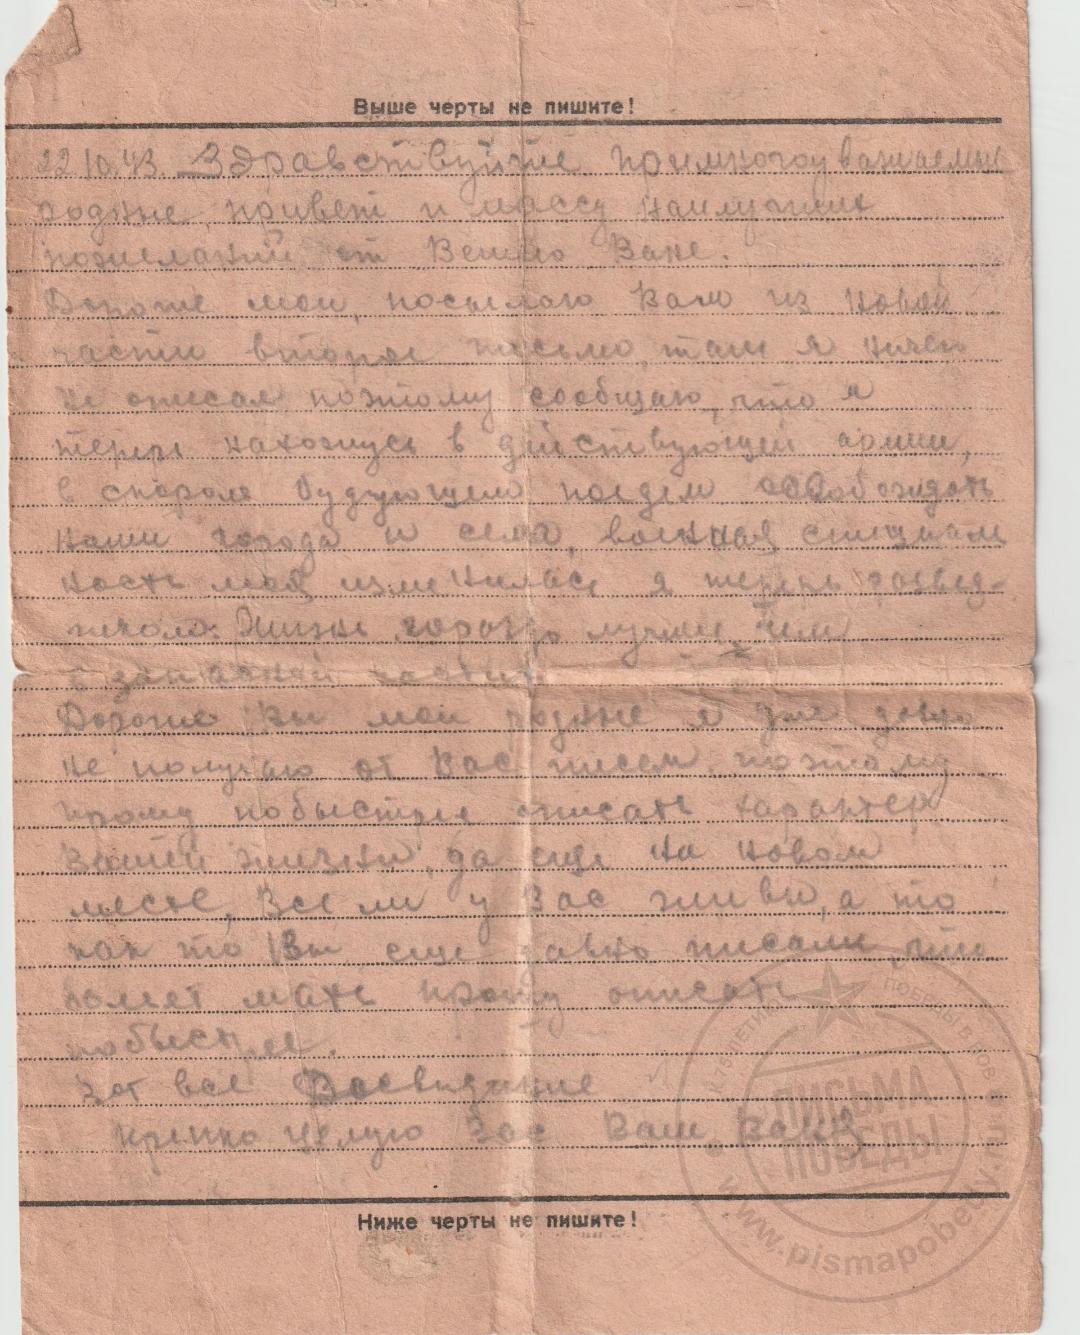 Выше черты не пишите!
22.10.43. Здравствуйте примногоуважаемые
родные, привет и массу наилучших
пожеланий от Вашего Вани.
Дорогие мои, посылаю Вам из новой
части второе письмо, там я ничего
не описал поэтому сообщаю, что я
теперь нахожусь в действующей армии,
в скором будующем поедем освобождать
наши города и села, военная специаль
ность моя изменилась я теперь развед-
чиком. Жизнь гораздо лучше, чем
в запасной части.
Дорогие Вы мои родные я уже давно
не получаю от Вас писем поэтому
прошу побыстрее описать характер
Вашей жизни, да еще на новом
месте, Все ли у Вас живы, а то
как то Вы еще давно писали, что
болеет мать прошу описать
побыстрее.
Вот все Досвидание
Крепко целую Вас Ваш Ваня
Ниже черты не пишите!
К 75-ЛЕТИЮ ПОБЕДЫ В ВОВ
ПИСЬМА
ПОБЕДЫ
www.pismapobedy.ru